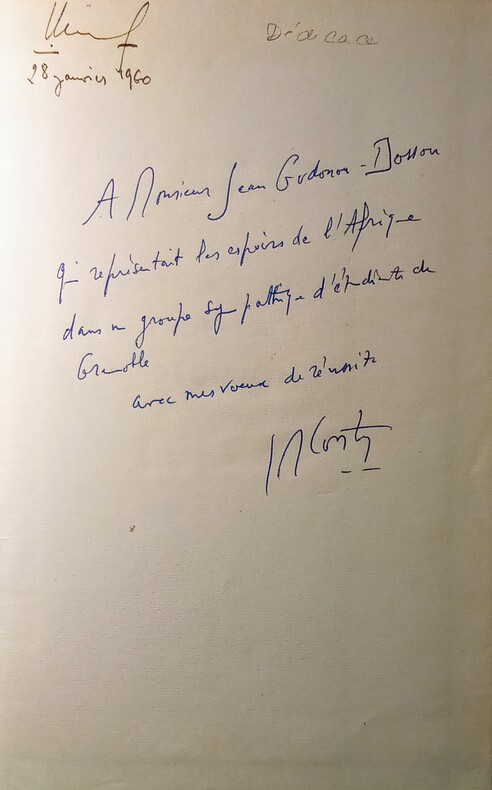 Dédicace
28 janvier 1960
A Monsieur Jean Godonou-Dossou
qui représentait les espoirs de l'Afrique
dans un groupe sympathique d'étudiants de
Grenoble
avec mes voeux de réussite